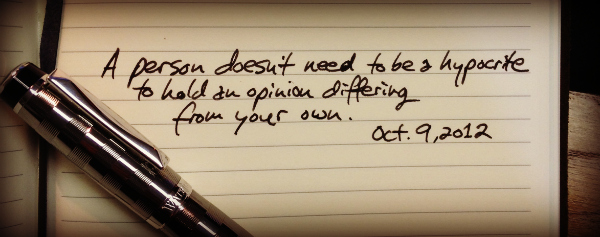 A person doesn't need to be a hypocrite
to hold an opinion differing
from your own.
Oct. 9, 2012